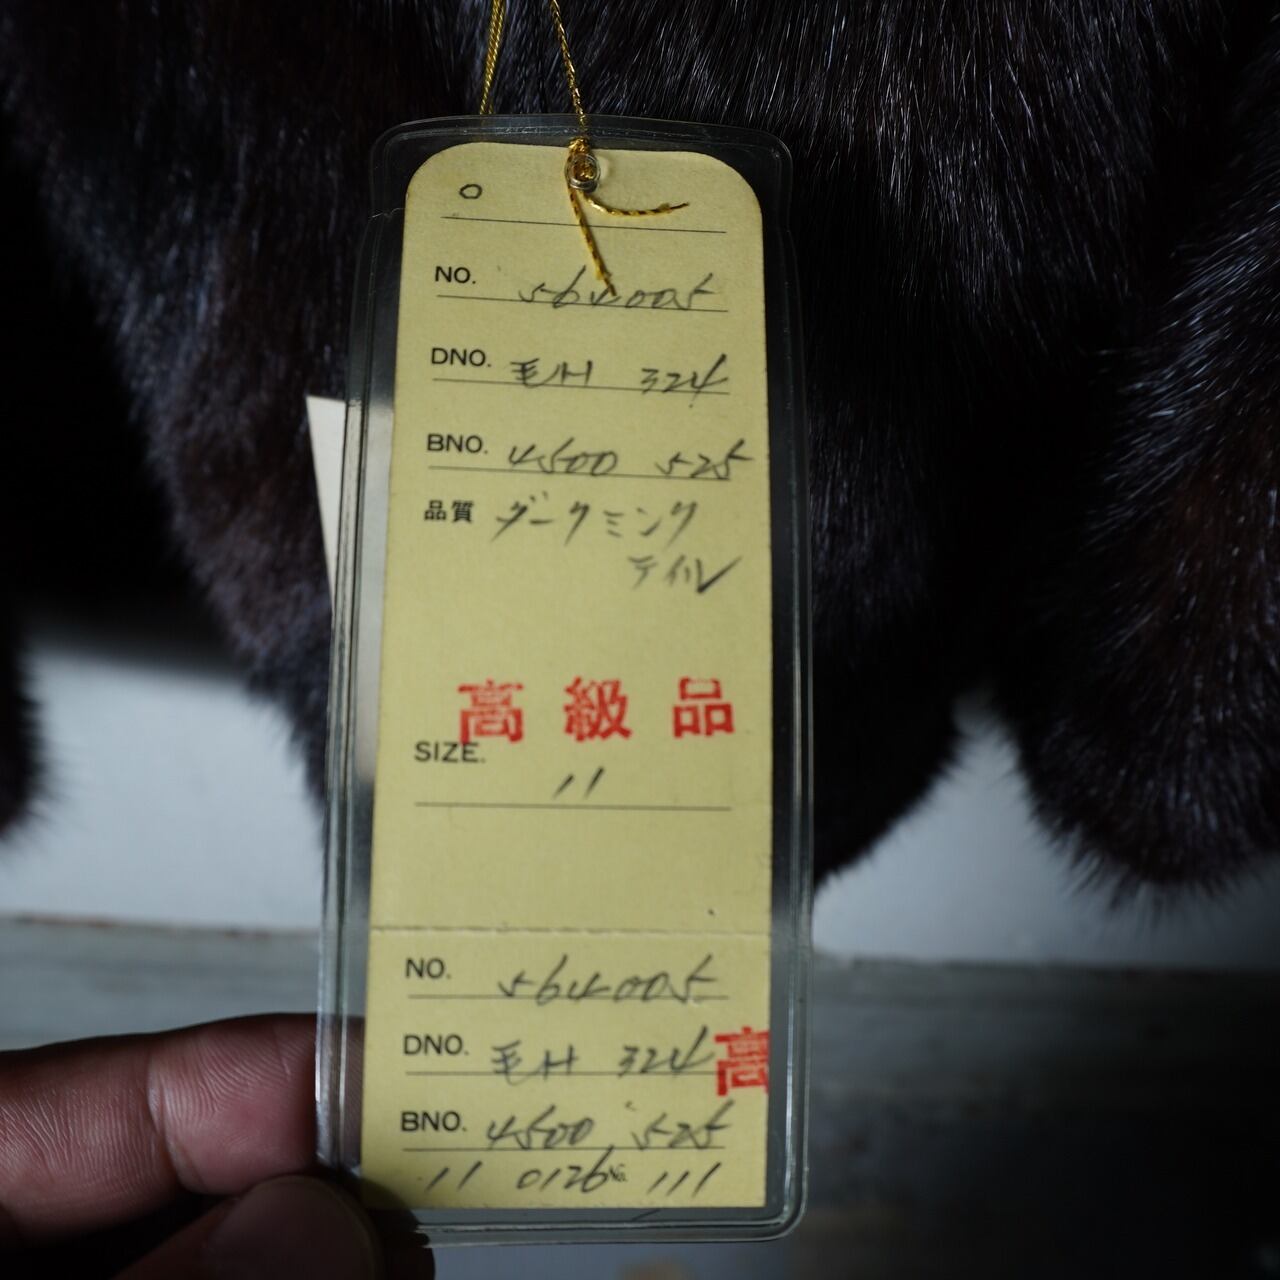 O
NO. 564005
DNO. 毛H 324
BNO. 4500 525
品質 ダークミンク
テイル
高級品
SIZE. 11
NO. 564005
DNO. 毛H 324
高
BNO. 4500 525
11 0126 No. 111